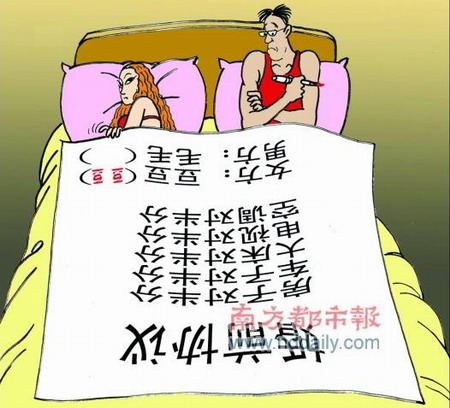 婚前协议
房子对半分
车子对半分
大床对半分
电视对半分
空调对半分
女方：豆豆（豆豆）
男方：毛豆（ ）
南方都市報
www.nddaily.com